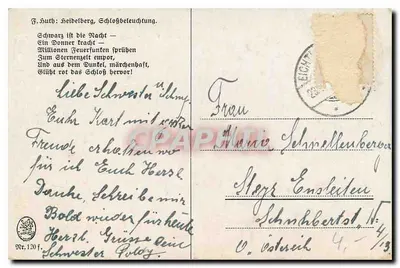 F. Huth: Heidelberg, Schloßbeleuchtung.
Schwarz ist die Nacht —
Ein Donner kracht —
Millionen Feuerfunken sprühen
Zum Sternenzelt empor,
Und aus dem Dunkel, märchenhaft,
Glüht rot das Schloß hervor!
Liebe Schwester u.
Eure Kart mit
Freude erhalten wo
für ich Euch Herzl
Danke, Schreibe mir
Bold wieder für heute
Herzl. Grüsse Deine
Schwester Poldy.
Nr. 120 f.
Frau
Maria Schnellenberger
Steyr Ensleiten
Schuhbertst. N=
4/13
O. Östereich
4,-
CPARAMA